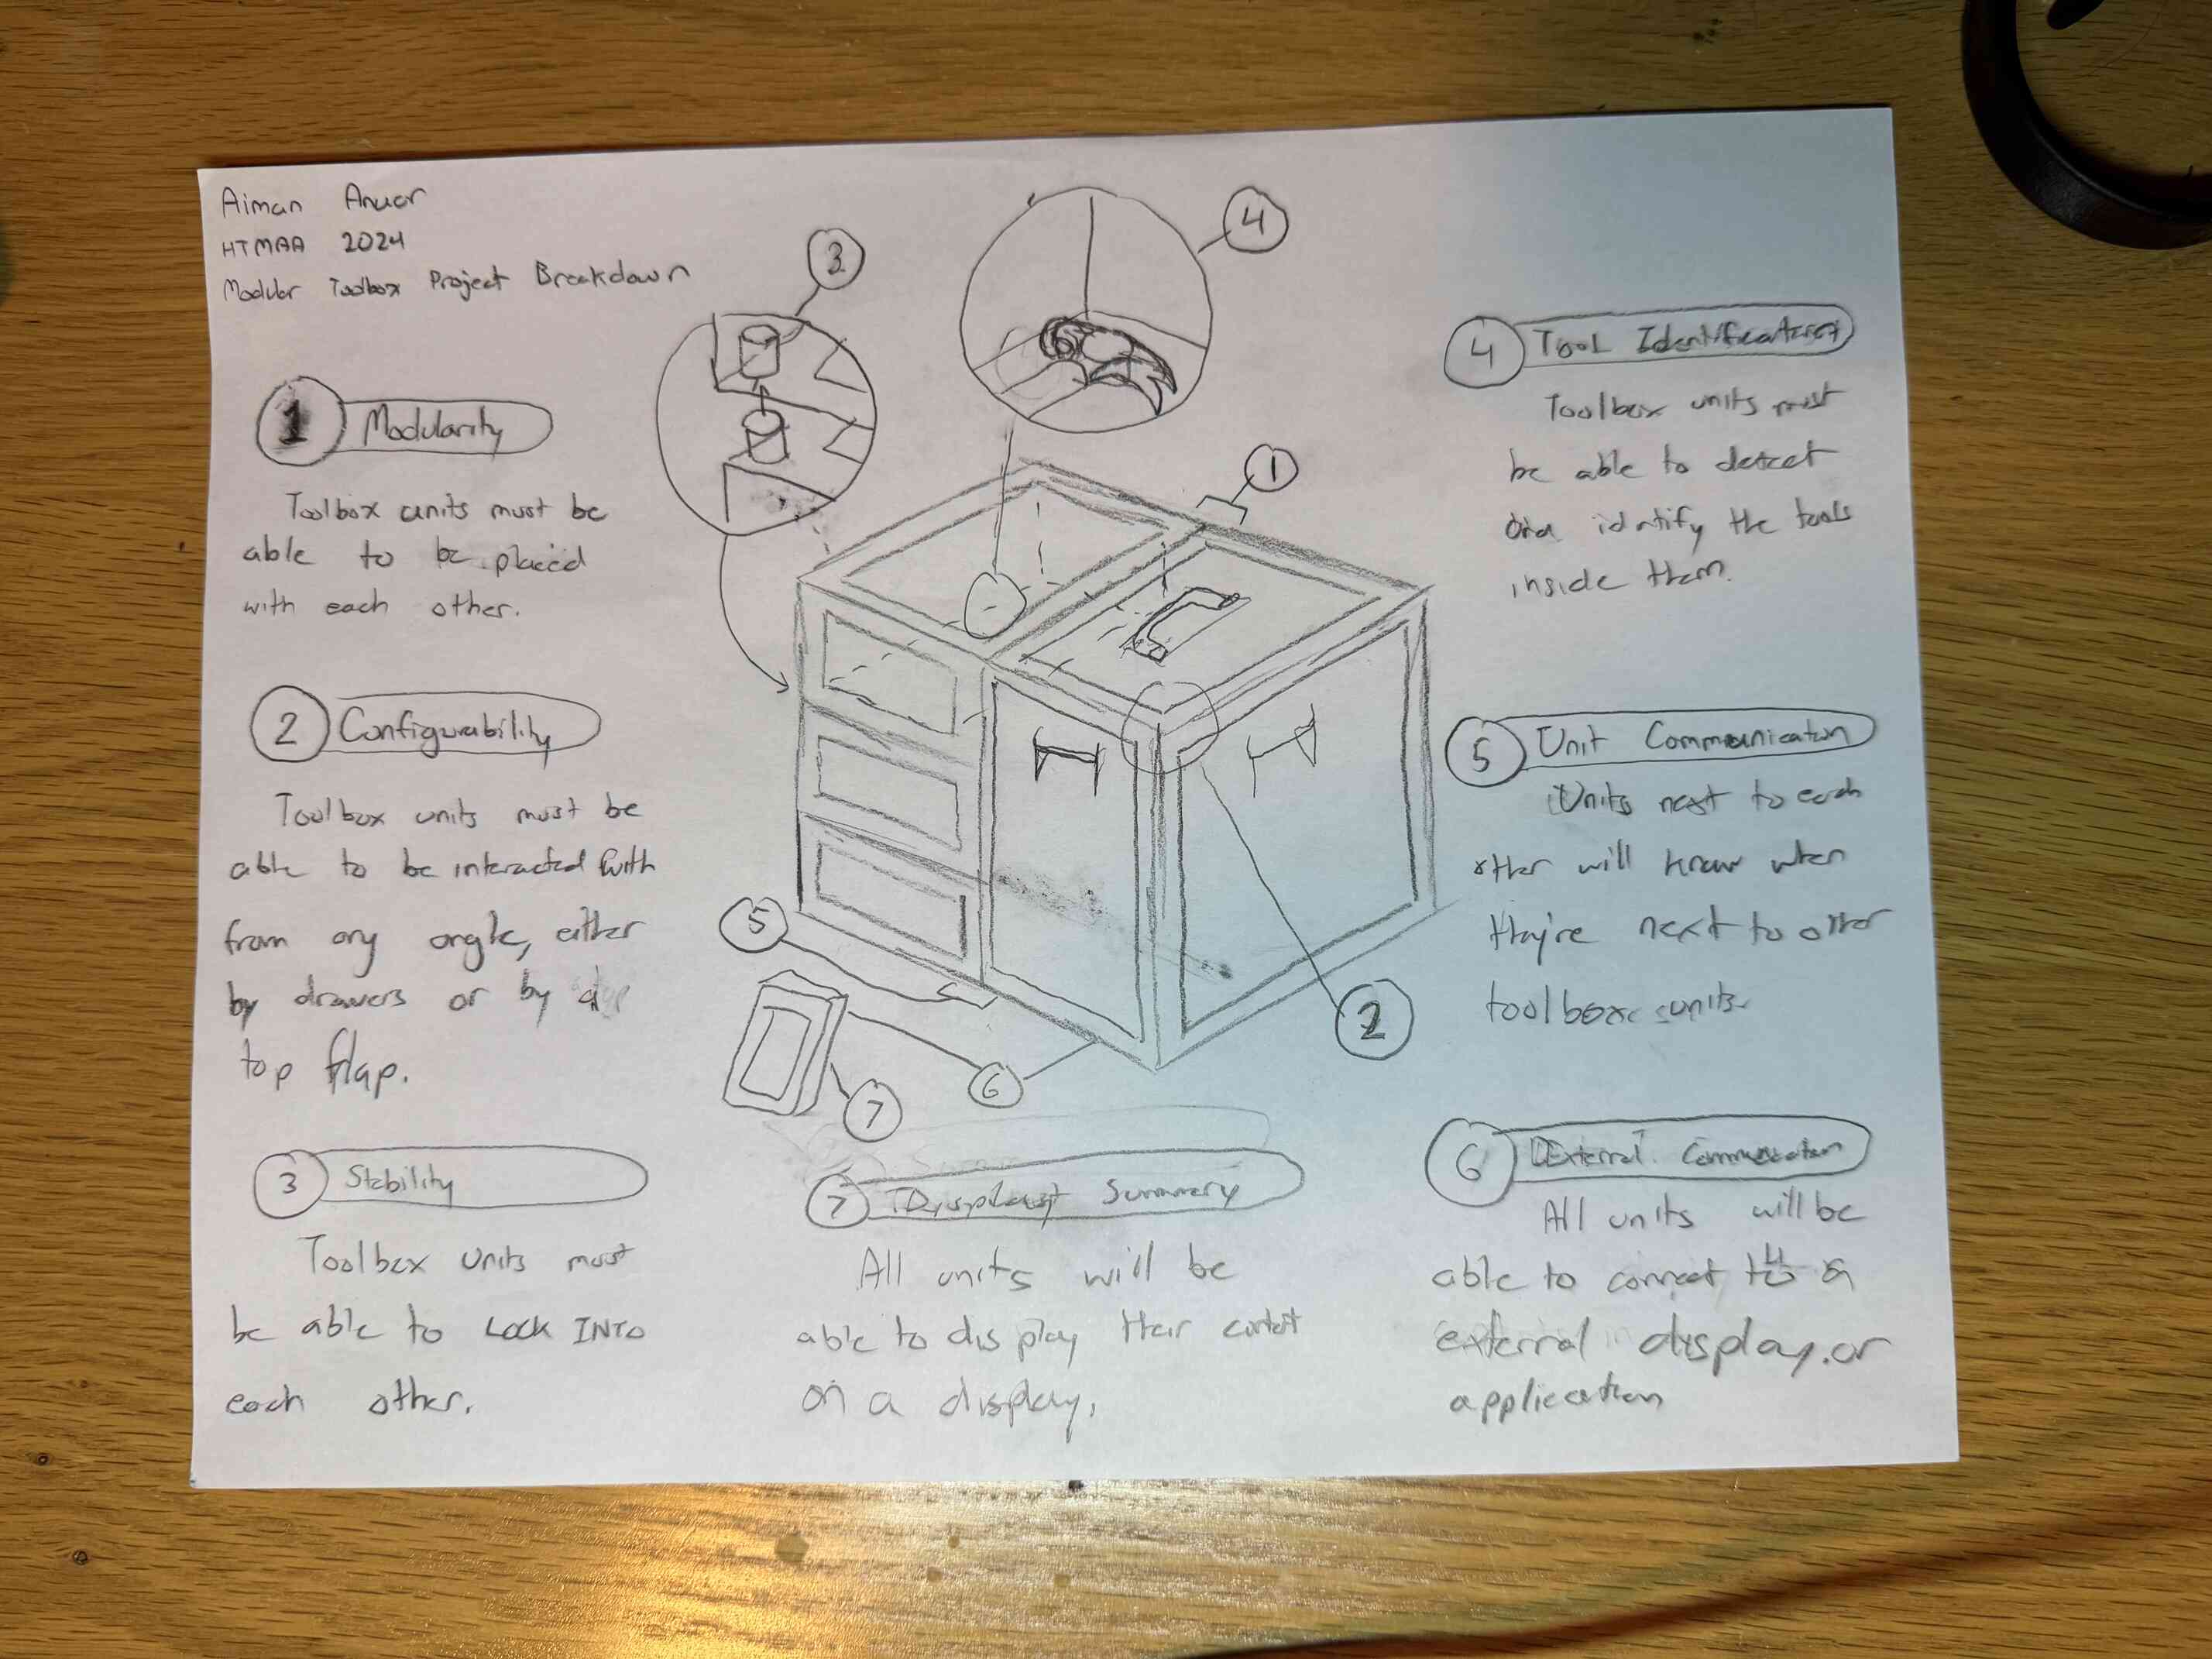 Aiman Anuar
HTMAA 2024
Modular Toolbox Project Breakdown
3
4
1
1 Modularity
Toolbox units must be
able to be placed
with each other.
2 Configurability
Toolbox units must be
able to be interacted with
from any angle, either
by drawers or by a
top flap.
3 Stability
Toolbox units must
be able to LOCK INTO
each other.
5
6
7
2
7 Display Summary
All units will be
able to display their content
on a display.
4 Tool Identification
Toolbox units must
be able to detect
and identify the tools
inside them.
5 Unit Communication
Units next to each
other will know when
they're next to other
toolbox units.
6 External Communication
All units will be
able to connect to a
external display or
application